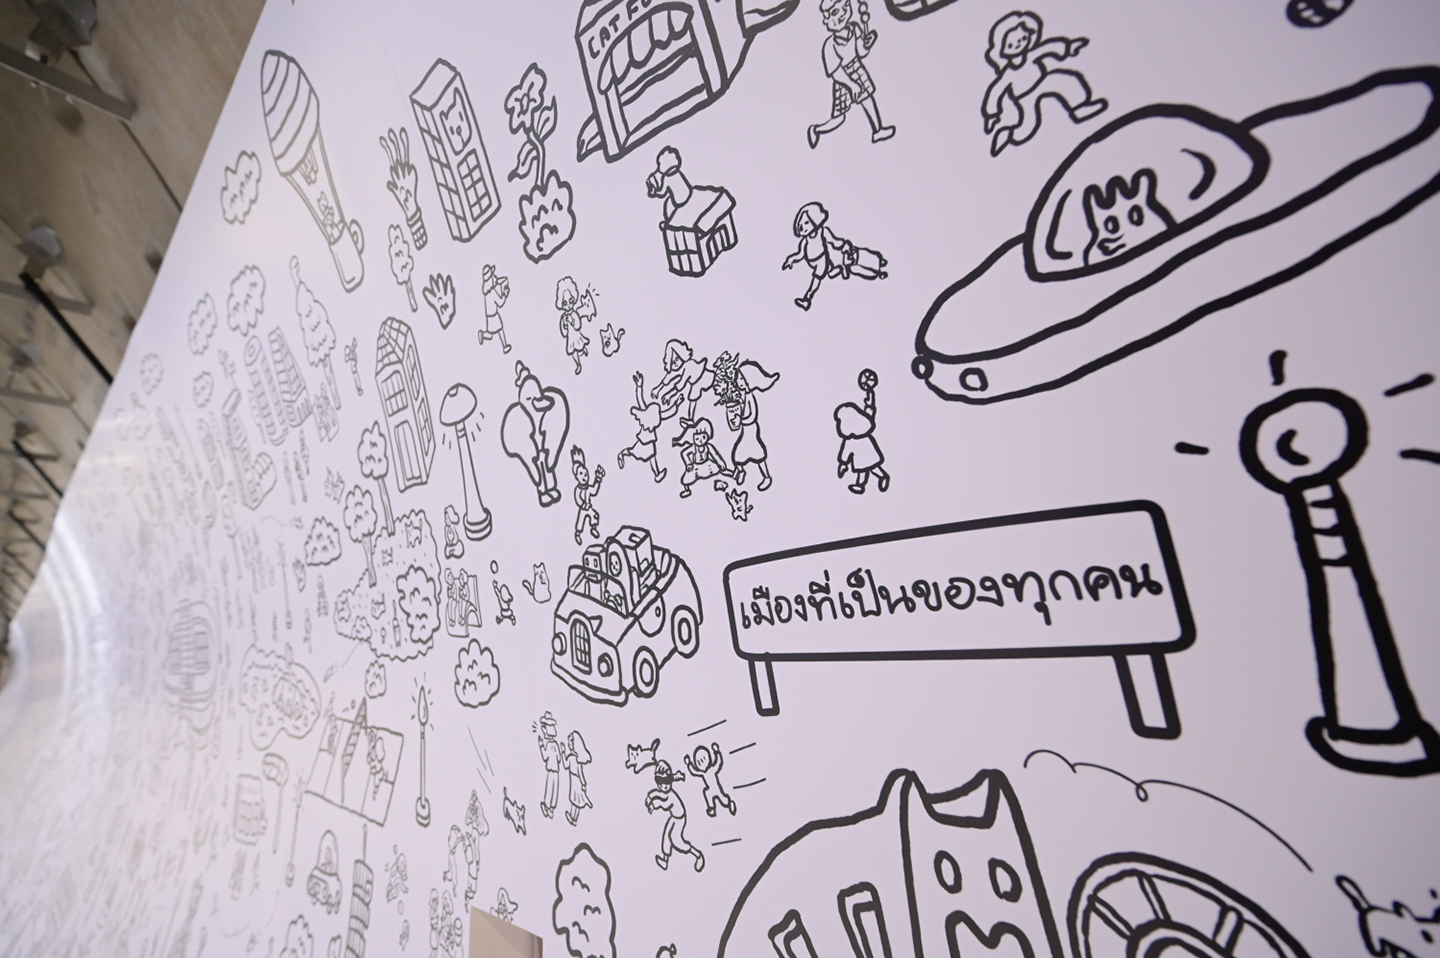 CAT FO
เมืองที่เป็นของทุกคน